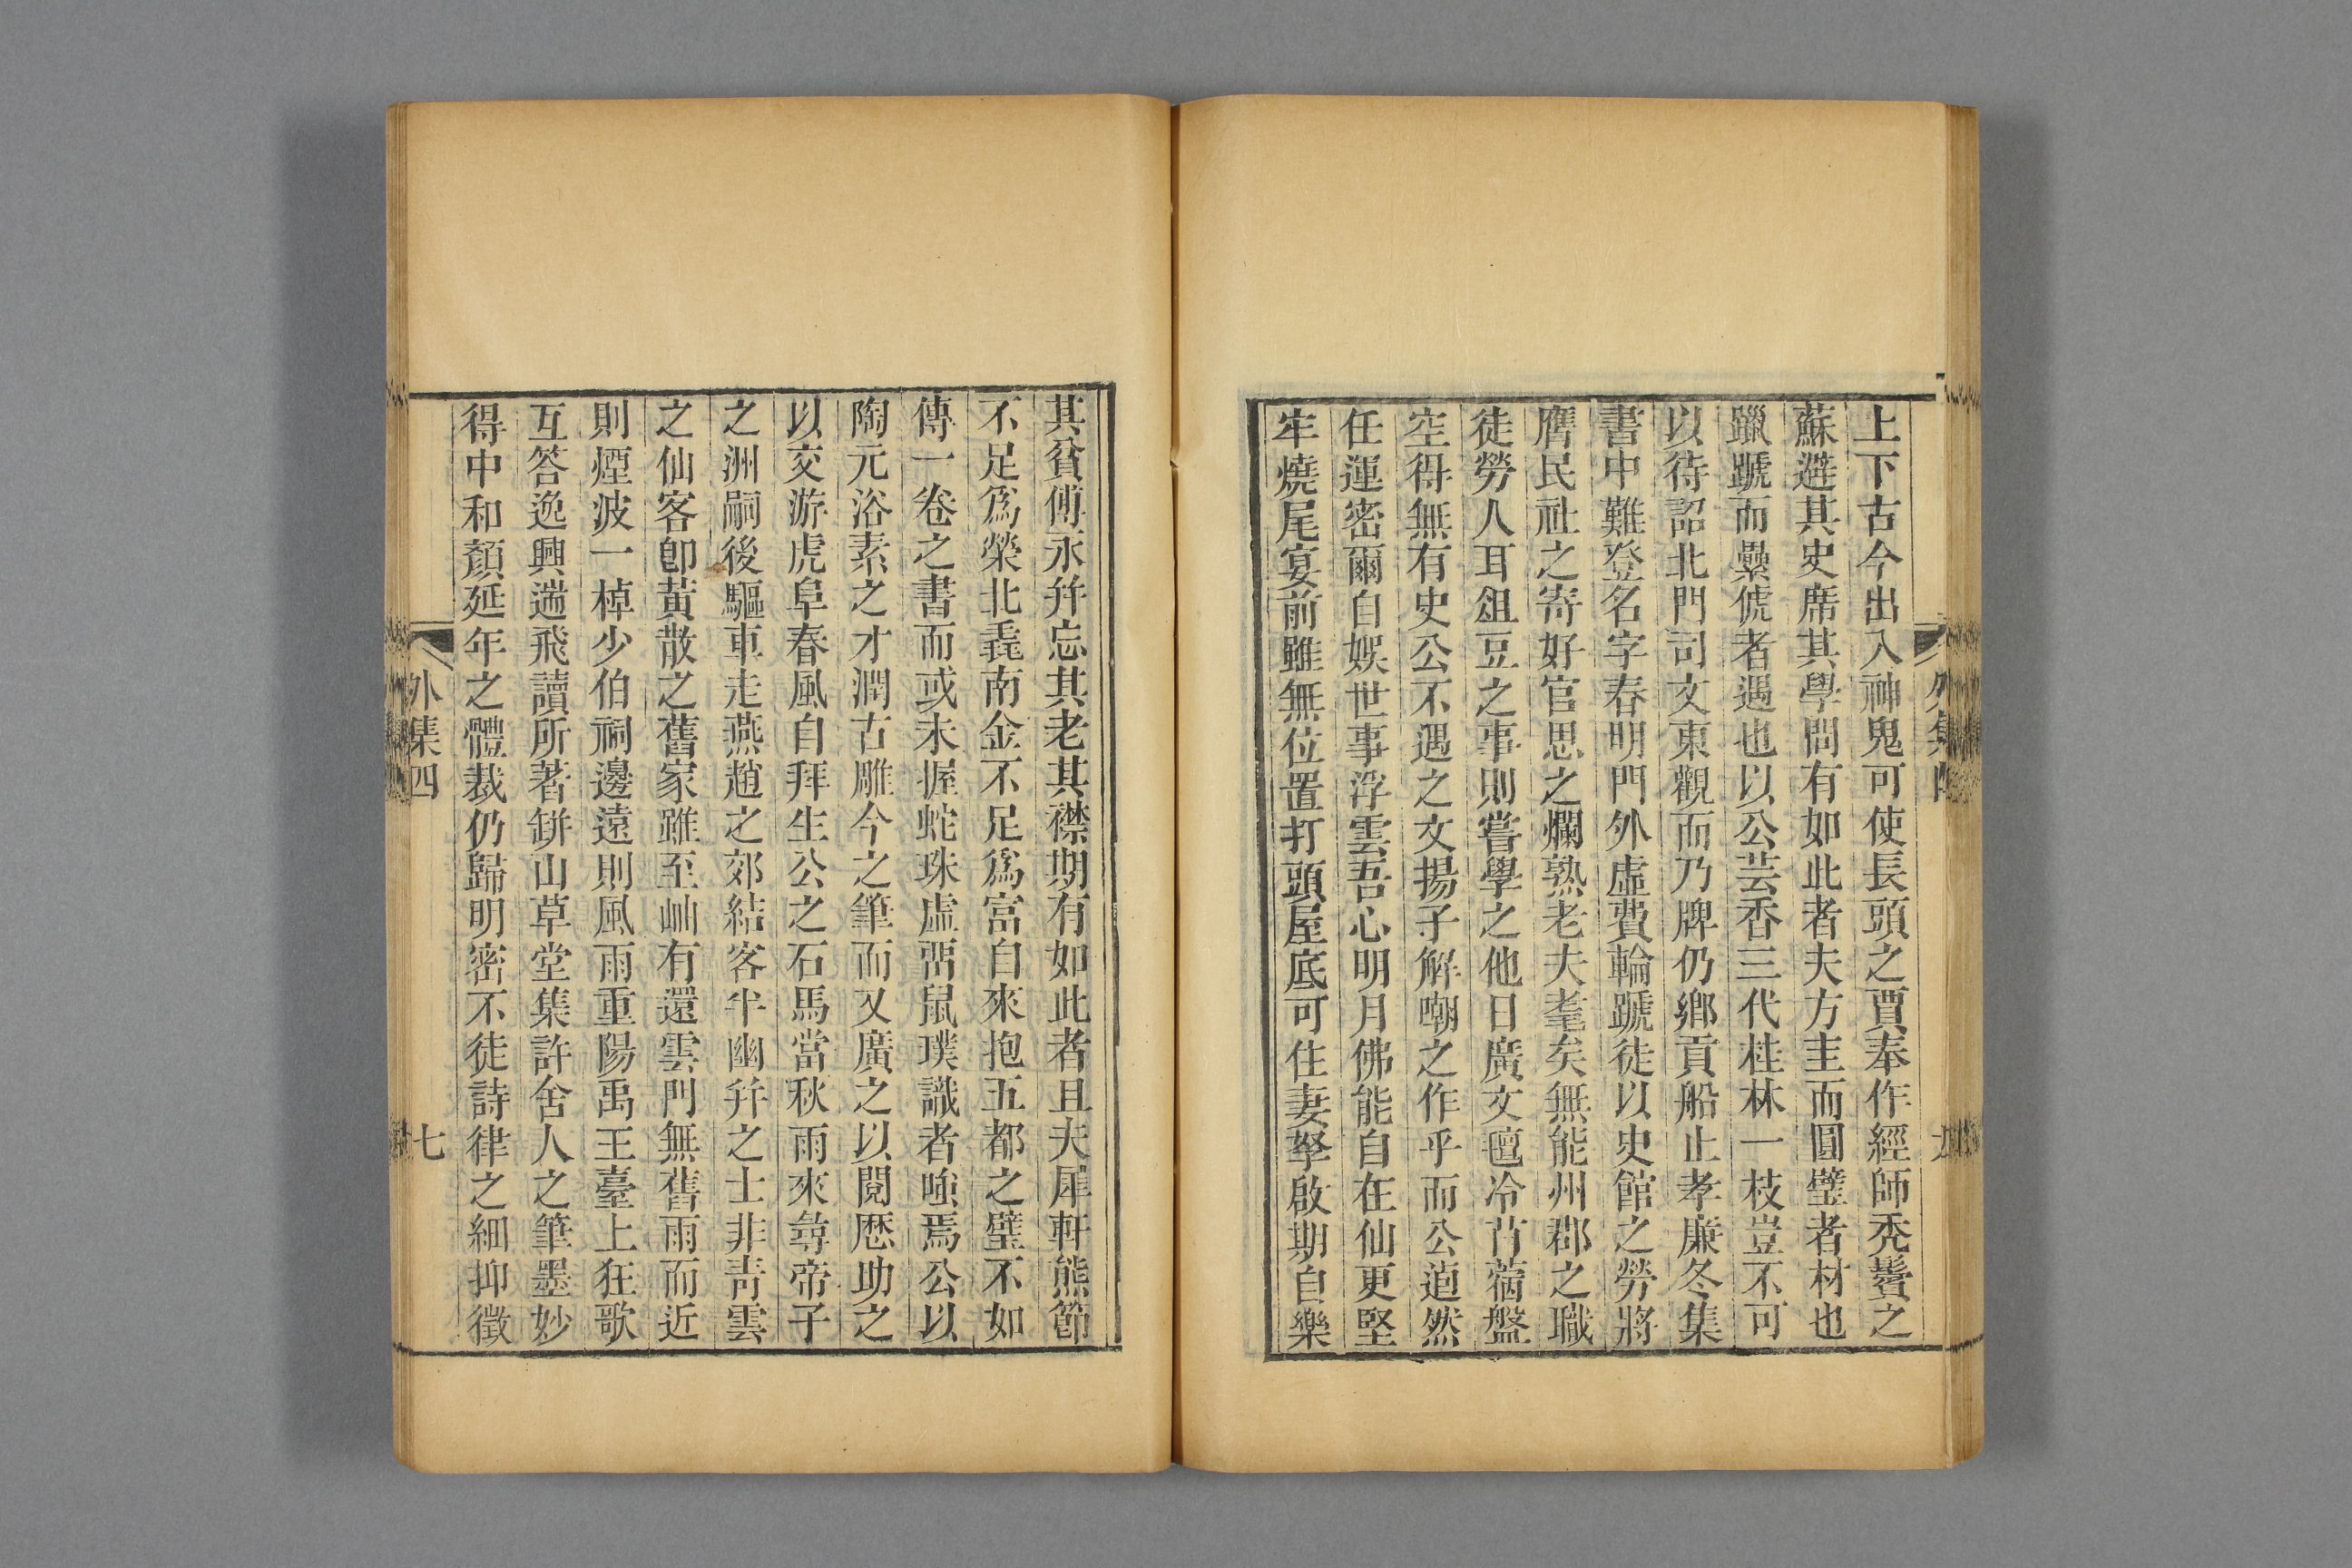 上下古今出入神鬼可使長頭之賈奉作經師禿鬢之
蘇避其史席其學問有如此者夫方圭而圓璧者材也
躐蹏而纍俿者遇也以公芸香三代桂林一枝豈不可
以待詔北門司文東觀而乃牌仍鄉貢船止孝廉冬集
書中難登名字春明門外虛費輪蹏徒以史館之勞將
膺民社之寄好官思之爛熟老夫耄矣無能州郡之職
徒勞人耳俎豆之事則嘗學之他日廣文氊冷苜蓿盤
空得無有史公不遇之文揚子解嘲之作乎而公逌然
任運密爾自娛世事浮雲吾心明月佛能自在仙更堅
牢燒尾宴前雖無位置打頭屋底可住妻孥啟期自樂
其貧傅永并忘其老其襟期有如此者且夫犀軒熊節
不足爲榮北毳南金不足爲富自來抱五都之璧不如
傳一卷之書而或未握蛇珠虛誇鼠璞識者嗤焉公以
陶元浴素之才潤古雕今之筆而又廣之以閱歷助之
以交游虎阜春風自拜生公之石馬當秋雨來尋帝子
之洲嗣後驅車走燕趙之郊結客半幽并之士非青雲
之仙客卽黃散之舊家雖至岫有還雲門無舊雨而近
則煙波一棹少伯祠邊遠則風雨重陽禹王臺上狂歌
互答逸興遄飛讀所著缾山草堂集許舍人之筆墨妙
得中和顏延年之體裁仍歸明密不徒詩律之細抑徵
外集四
七